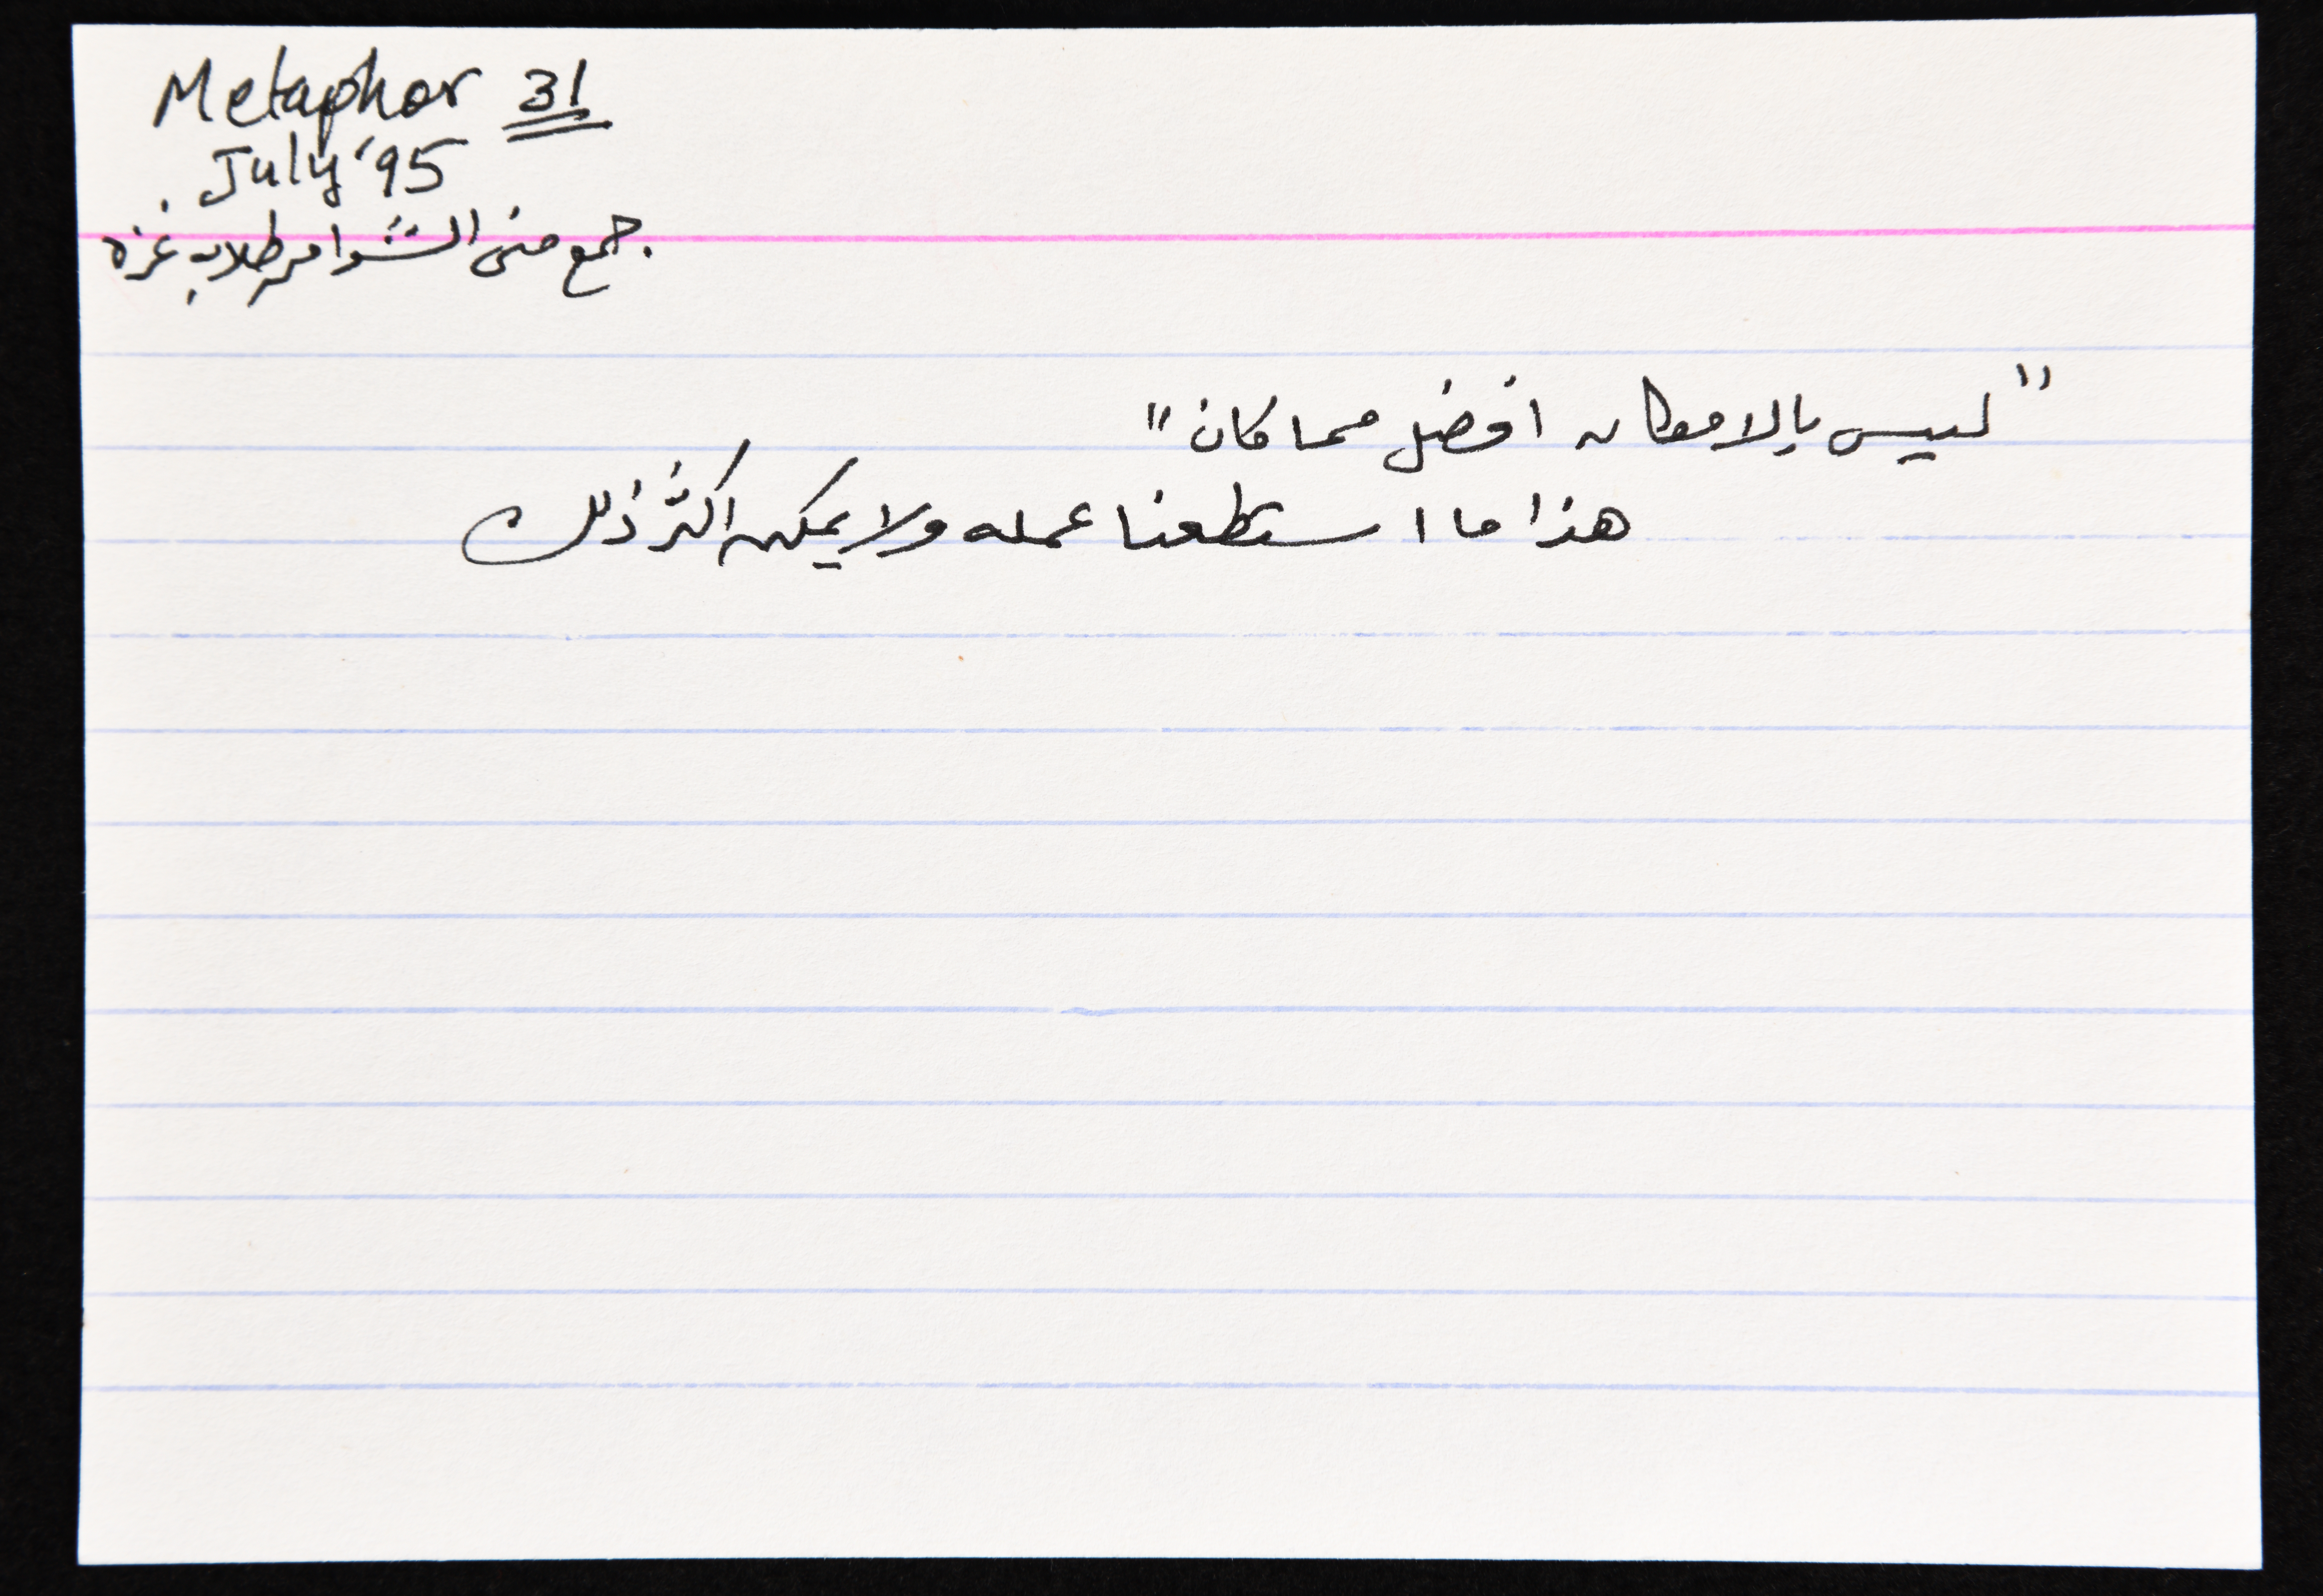 Metaphor 31
July '95
جمع منى الشوا من طلاب غزة
"ليس بالامكان افضل مما كان"
هذا ما استطعنا عمله ولا يمكن اكثر ذلك